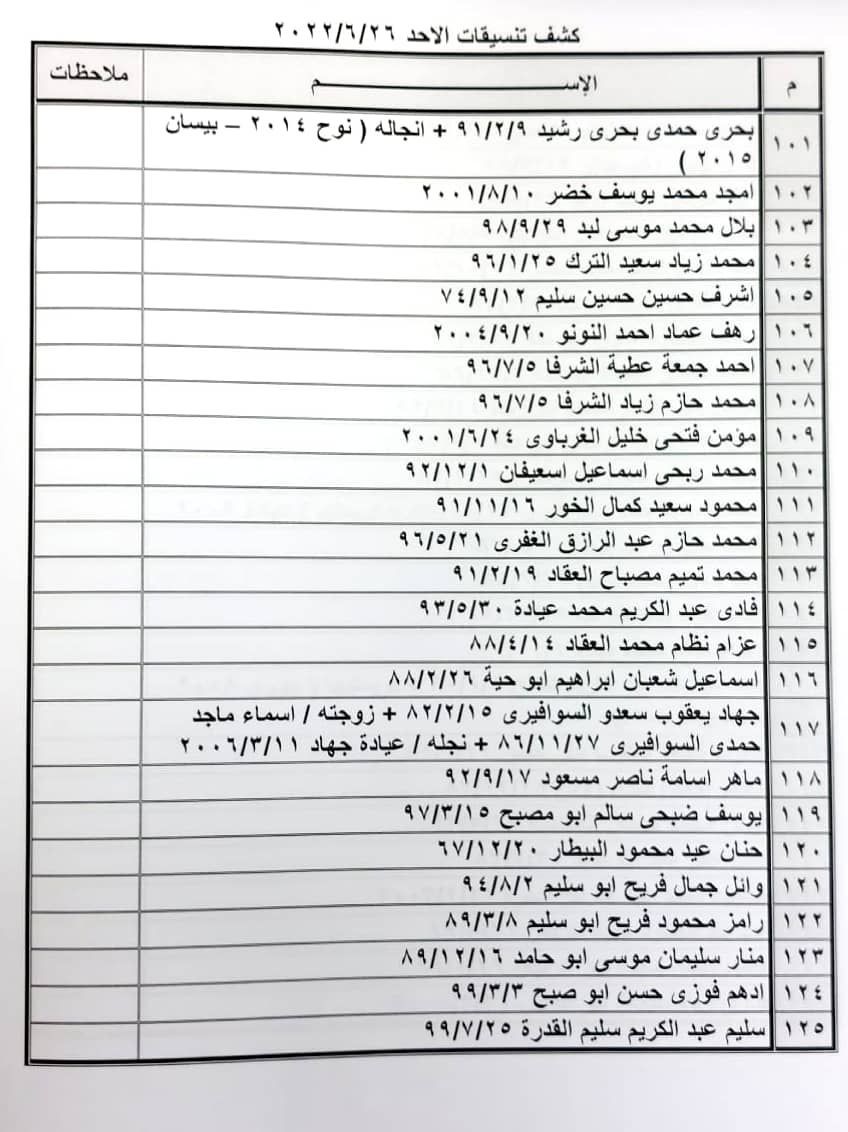 كشف تنسيقات الاحد ٢٠٢٢/٦/٢٦
م الإســـــــــــم ملاحظات
١٠١ بحرى حمدى بحرى رشيد ٩١/٢/٩ + انجاله ( نوح ٢٠١٤ – بيسان
٢٠١٥ )
١٠٢ امجد محمد يوسف خضر ٢٠٠١/٨/١٠
١٠٣ بلال محمد موسى لبد ٩٨/٩/٢٩
١٠٤ محمد زياد سعيد الترك ٩٦/١/٢٥
١٠٥ اشرف حسين حسين سليم ٧٤/٩/١٢
١٠٦ رهف عماد احمد النونو ٢٠٠٤/٩/٢٠
١٠٧ احمد جمعة عطية الشرفا ٩٦/٧/٥
١٠٨ محمد حازم زياد الشرفا ٩٦/٧/٥
١٠٩ مؤمن فتحى خليل الغرباوى ٢٠٠١/٦/٢٤
١١٠ محمد ربحى اسماعيل اسعيفان ٩٢/١٢/١
١١١ محمود سعيد كمال الخور ٩١/١١/١٦
١١٢ محمد حازم عبد الرازق الغفرى ٩٦/٥/٢١
١١٣ محمد تميم مصباح العقاد ٩١/٢/١٩
١١٤ فادى عبد الكريم محمد عيادة ٩٣/٥/٣٠
١١٥ عزام نظام محمد العقاد ٨٨/٤/١٤
١١٦ اسماعيل شعبان ابراهيم ابو حية ٨٨/٢/٢٦
١١٧ جهاد يعقوب سعدو السوافيرى ٨٢/٢/١٥ + زوجته / اسماء ماجد
حمدى السوافيرى ٨٦/١١/٢٧ + نجله / عيادة جهاد ٢٠٠٦/٣/١١
١١٨ ماهر اسامة ناصر مسعود ٩٢/٩/١٧
١١٩ يوسف ضبحى سالم ابو مصبح ٩٧/٣/١٥
١٢٠ حنان عيد محمود البيطار ٦٧/١٢/٢٠
١٢١ وائل جمال فريح ابو سليم ٩٤/٨/٢
١٢٢ رامز محمود فريح ابو سليم ٨٩/٣/٨
١٢٣ منار سليمان موسى ابو حامد ٨٩/١٢/١٦
١٢٤ ادهم فوزى حسن ابو صبح ٩٩/٣/٣
١٢٥ سليم عبد الكريم سليم القدرة ٩٩/٧/٢٥